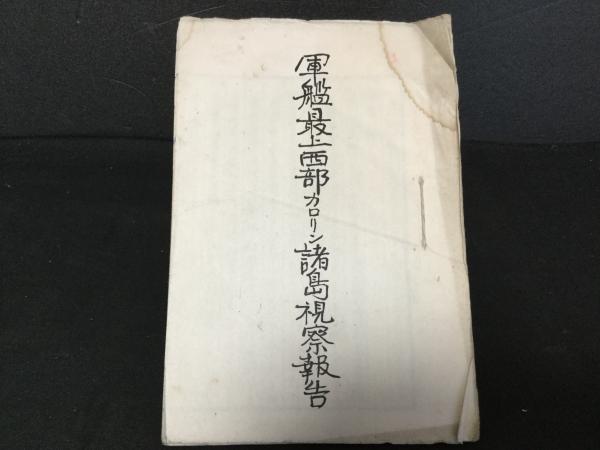 軍艦最上西部カロリン諸島視察報告